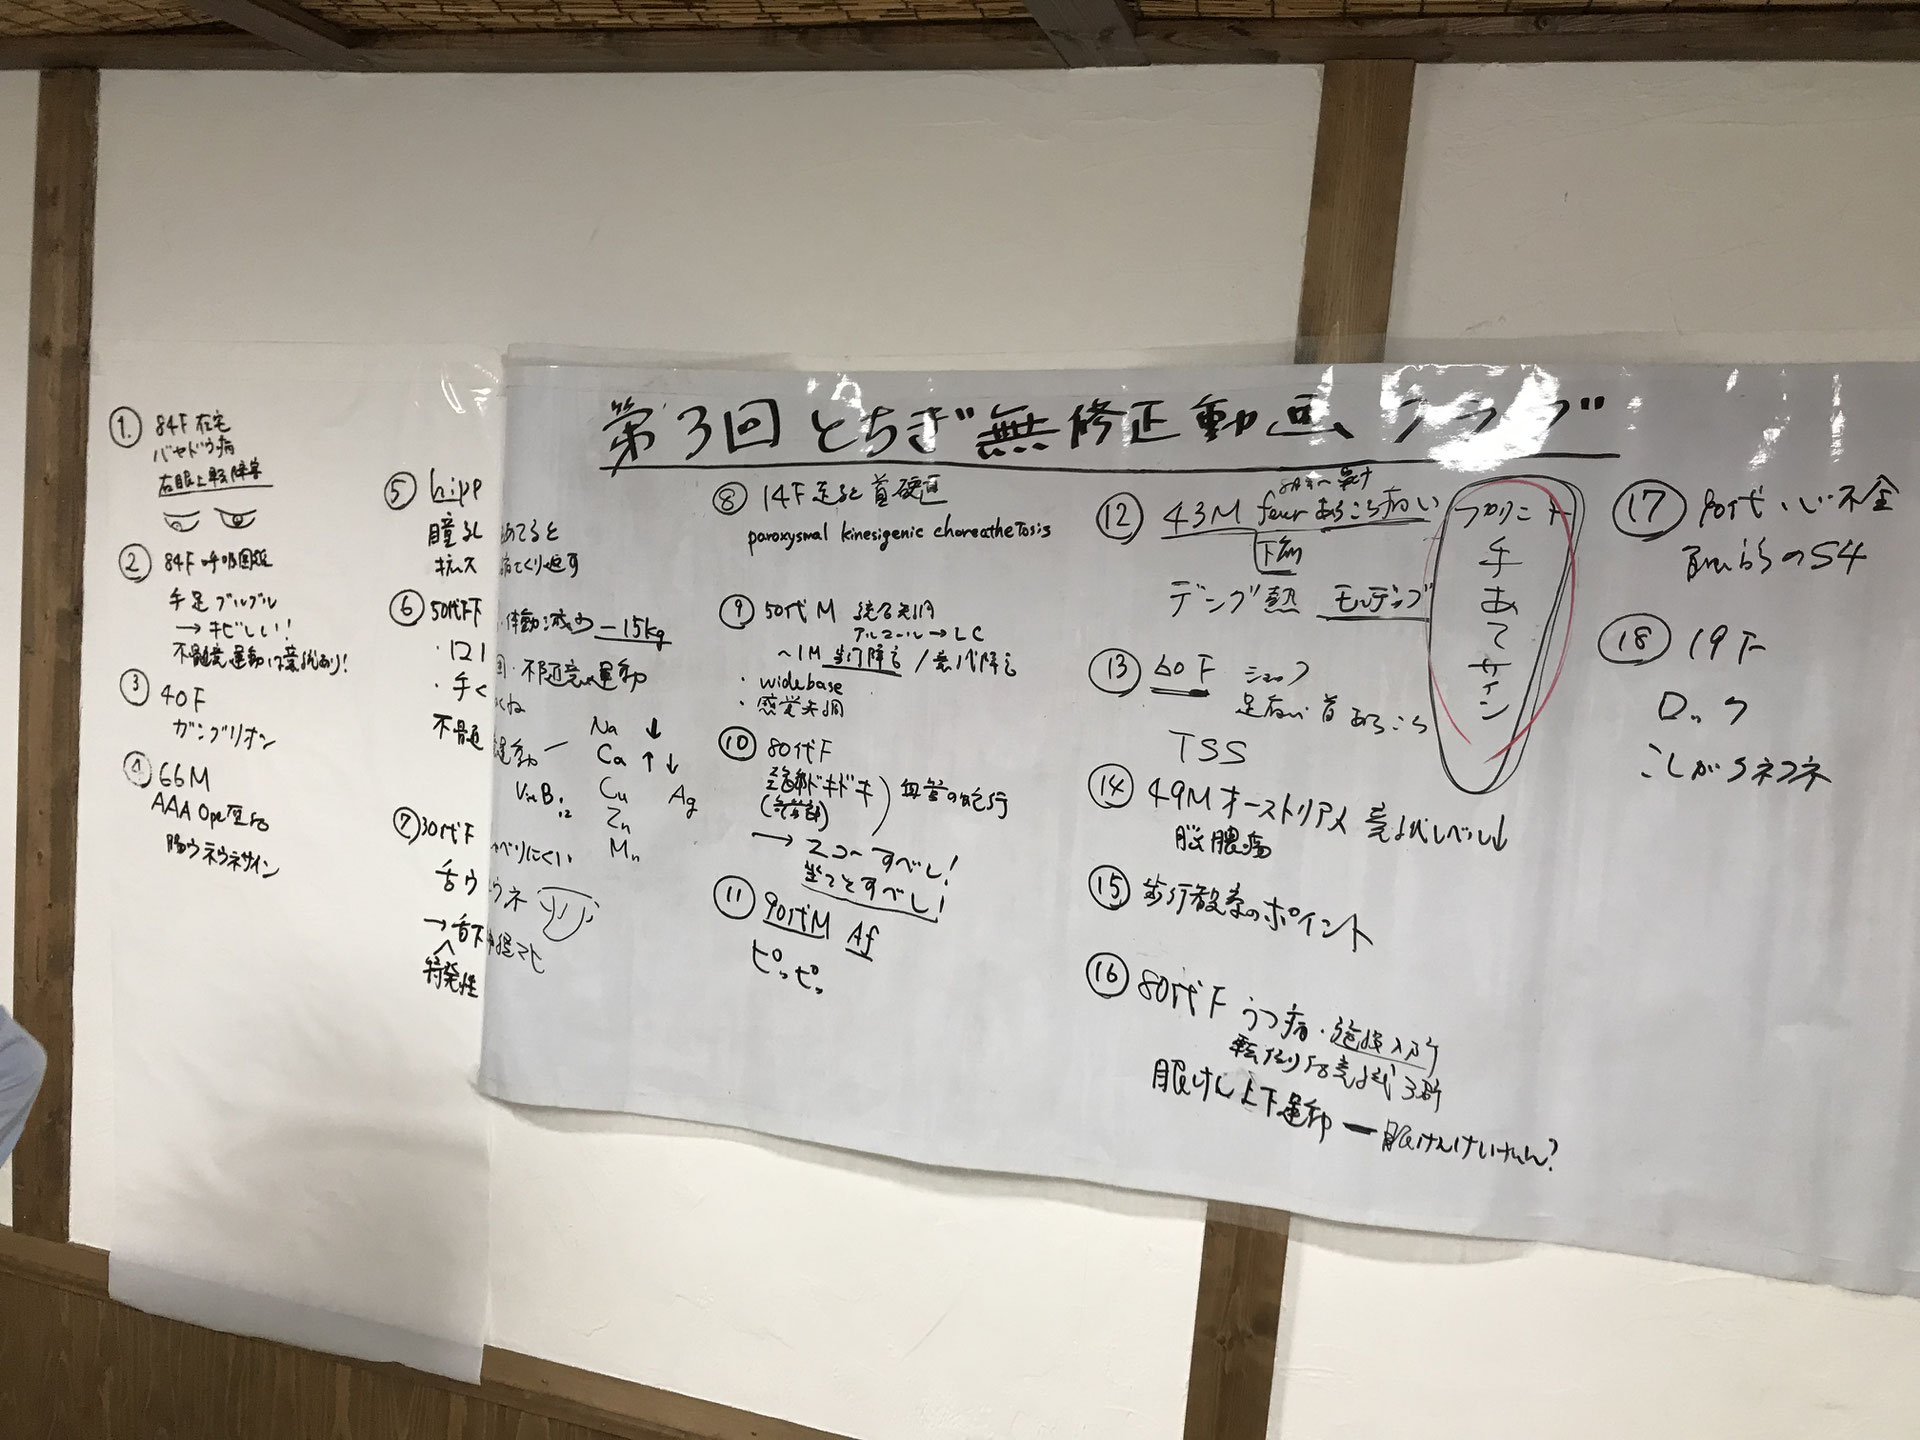 第3回とちぎ無修正動画クラブ
① 84F 在宅
バセドウ病
右眼上転障害
② 84F 呼吸困難
手足ブルブル
→ キビしい!
不随意運動に意識あり!
③ 40F
ガングリオン
④ 66M
AAA Ope
腸ウネウネサイン
⑤ hipp
瞳孔
めてると
くり返す
⑥ 50代F 下 体動減少 -15kg
・121
・手く
・不随意運動
くね
不随
運動 ー Na ↓
Ca ↑↓
Vit B12 Cu Ag
Zn
Mn
⑦ 30代F
べりにくい
舌ウ ウネ
→ 舌下 神経マヒ
特発性
⑧ 14F 足と首硬直
paroxysmal kinesigenic choreathetosis
⑨ 50代M 統合失調
アルコール→LC
~1M 歩行障害/意識障害
・widebase
・感覚失調
⑩ 80代F
頸部ドキドキ
血管の蛇行
→ エコーすべし!
当てとすべし!
⑪ 90代M Af
ピッピッ
⑫ 43M fever あちこち痛い
下痢
デング熱 モルディブ
プリニト
手あてサイン
⑬ 60F ショック
足痛い 首 あちこち
TSS
⑭ 49M オーストリア人 意識レベル↓
脳膿瘍
⑮ 歩行教室のポイント
⑯ 80代F うつ病・施設入所
転倒後意識3桁
眼けん上下運動 ー 眼けんけいれん?
⑰ 80代 心不全
S4
⑱ 19F
ロック
こしがうネウネ